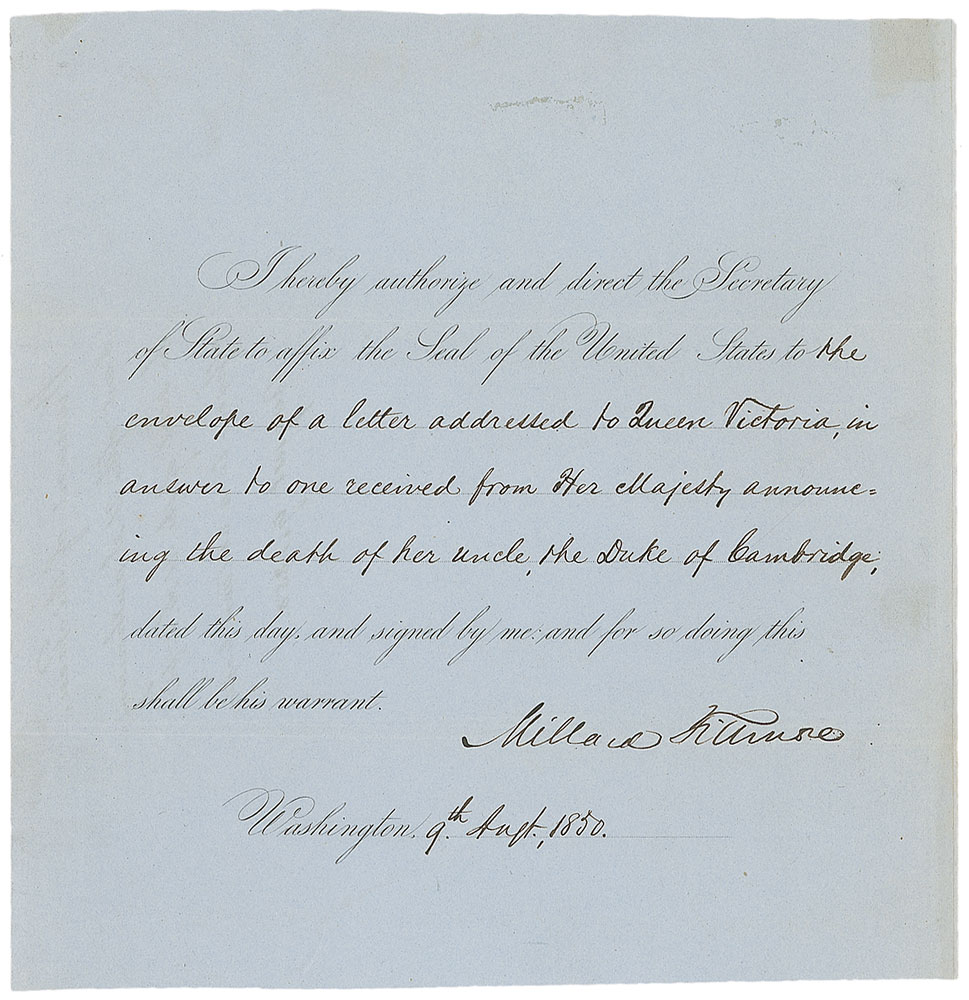 I hereby authorize and direct the Secretary
of State to affix the Seal of the United States to the
envelope of a letter addressed to Queen Victoria, in
answer to one received from Her Majesty announc=
ing the death of her uncle, the Duke of Cambridge;
dated this day, and signed by me: and for so doing this
shall be his warrant.
Millard Fillmore
Washington, 9th Augt., 1850.